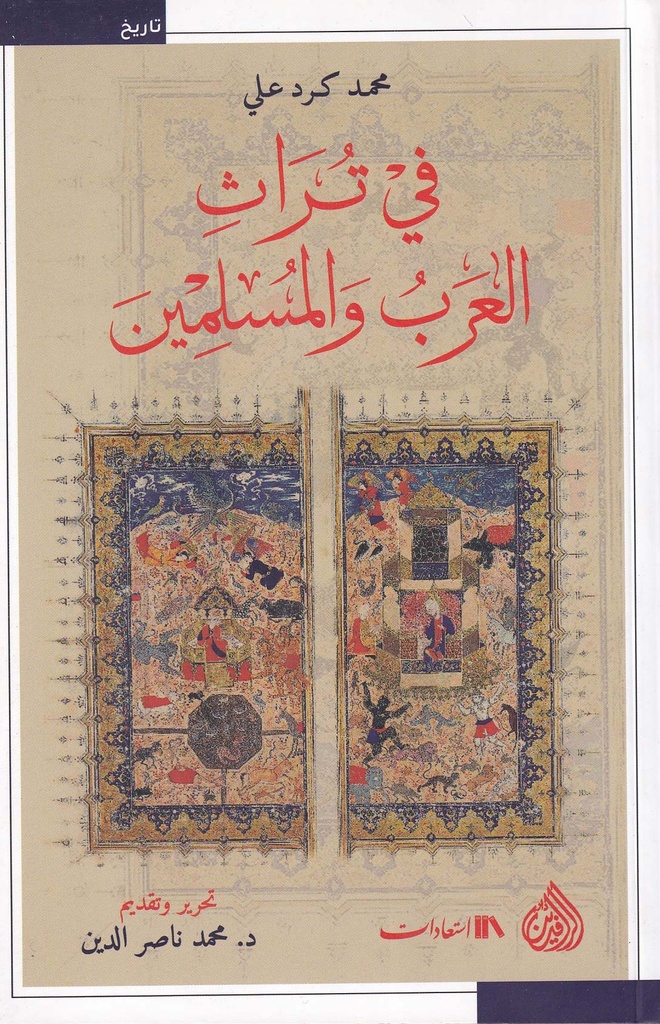 تاريخ
محمد كرد علي
فيْ تُرَاثِ
العَرَبُ وَالمُسْلِمْينَ
تحرير وتقديم
د. محمد ناصر الدين
استعادات
دار الرافدين